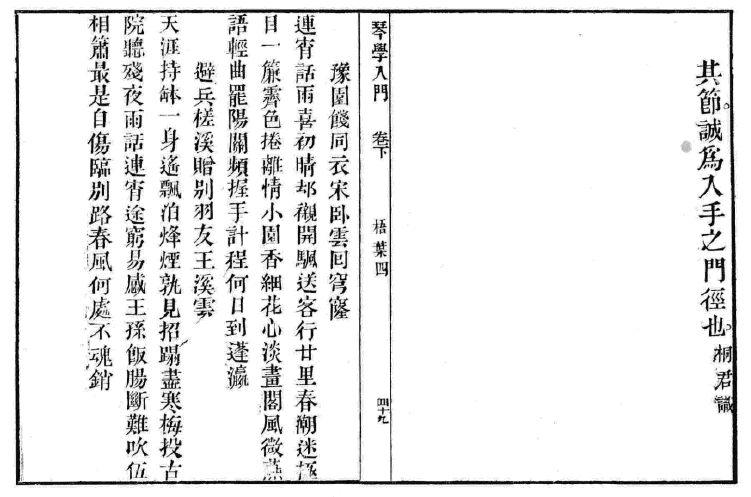 其節誠爲入手之門徑也桐君識
琴學入門 卷下 梧葉四 四十九
豫園餞同衣宋卧雲回穹窿
連宵話雨喜初晴却襯開颿送客行廿里春潮迷極
目一簾霽色捲離情小園香細花心淡畫閣風微燕
語輕曲罷陽關頻握手計程何日到蓬瀛
避兵槎溪贈别羽友王溪雲
天涯持缽一身遙飄泊烽煙孰見招蹋盡寒梅投古
院聽殘夜雨話連宵途窮易感王孫飯腸斷難吹伍
相簫最是自傷臨别路春風何處不魂銷